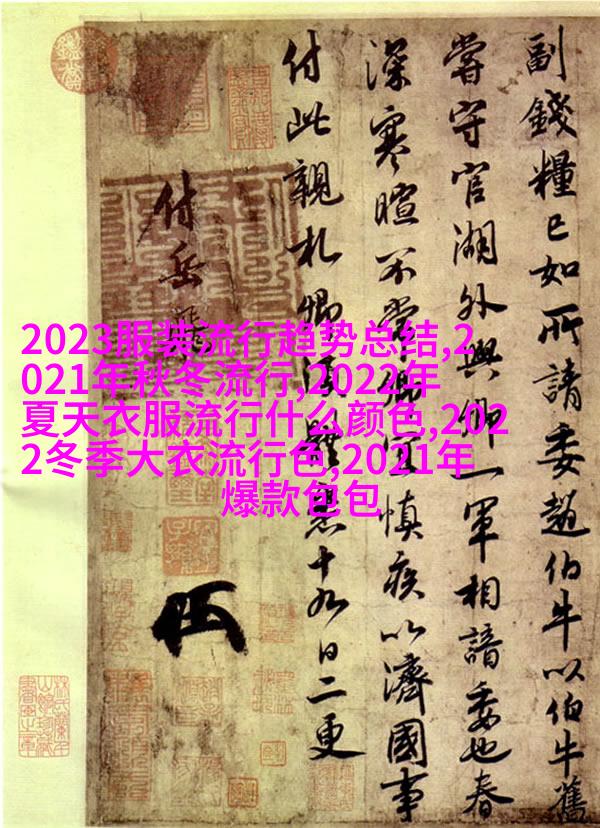 副錢糧已如所請委趙伯牛以伯牛舊
嘗守官湖外與卿一軍相諳委也春
深寒暄不常卿宜慎疾以濟國事
付此親札卿須體悉十九日二更
付岳飛
2023服装流行趋势总结,2
021年秋冬流行,2022年
夏天衣服流行什么颜色,202
2冬季大衣流行色,2021年
爆款包包